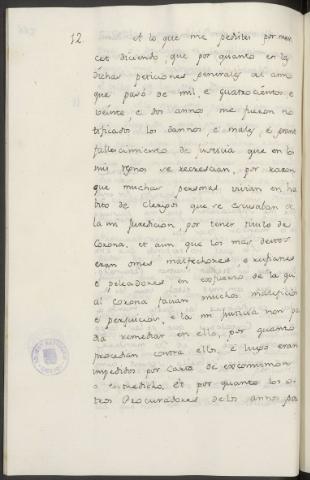 12. At lo que me pedistes por mer
cet diciendo, que por quanto en las
dichas peticiones generales el anno
que pasó de mil, e quatrocientos e
veinte, e dos annos me fueron no
tificado los dannos e males, e grant
fallecimiento de justicia que en los
mis regnos se recrescian, por razon
que muchas personas vivian en ha
bito de clerigos que se escusaban de
la mi juredicion, por tener titulo de
Corona, et aun que los mas destos
eran omes malfechores e rufianes
e peleadores en esfuerzo de la qu
al corona facian muchos maleficios
e perjuicios, e la mi justicia non po
dia remediar en ello, por quanto
procedian contra ellos, e luego eran
impedidos por carta de excomunion
o entredicho. Et por quanto los o
tros Procuradores de los annos pa